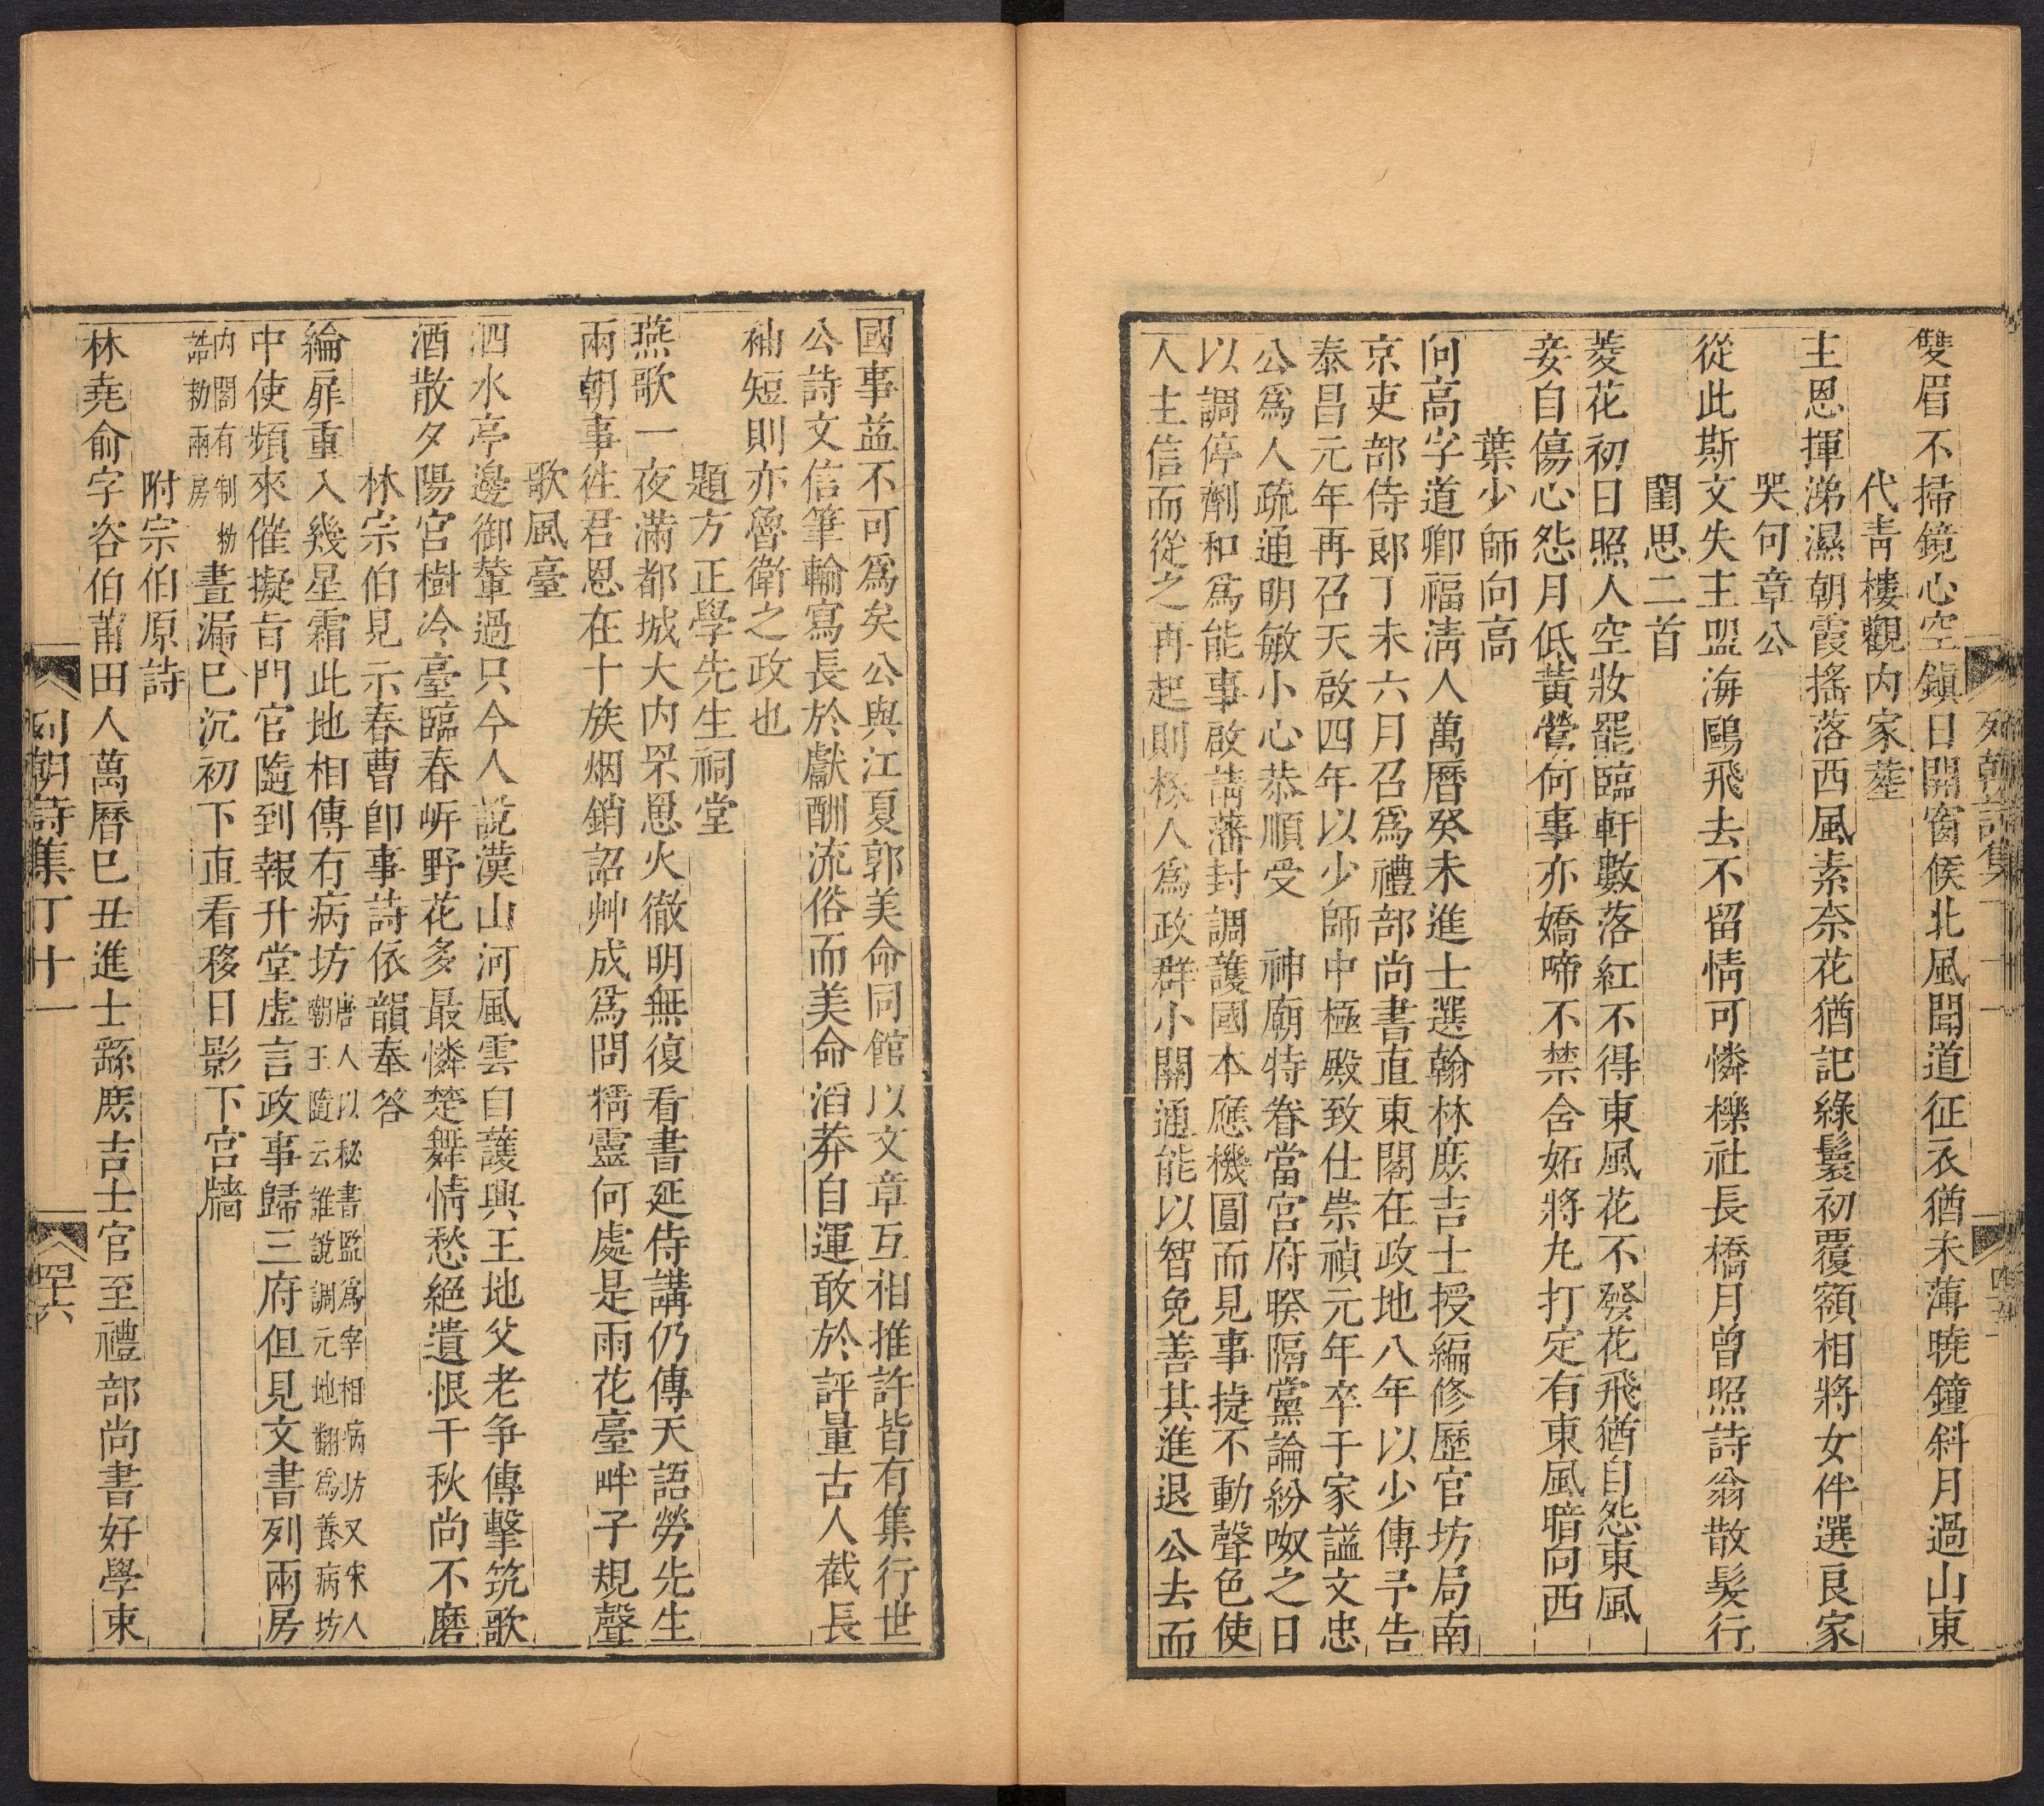 列朝詩集丁十一
雙眉不掃鏡心空鎭日開窗候北風聞道征衣猶未薄曉鐘斜月過山東
代靑樓觀內家塟
主恩揮涕濕朝霞搖落西風素奈花猶記綠鬟初覆額相將女伴選良家
哭何章公
從此斯文失主盟海鷗飛去不留情可憐櫟社長橋月曾照詩翁散髮行
閨思二首
菱花初日照人空妝罷臨軒數落紅不得東風花不發花飛猶自怨東風
妾自傷心怨月低黃鶯何事亦嬌啼不禁含妬將九打定有東風暗向西
葉少師向高
向高字道卿福淸人萬曆癸未進士選翰林庶吉士授編修歷官坊局南
京吏部侍郞丁未六月召爲禮部尚書直東閣在政地八年以少傳予告
泰昌元年再召天啟四年以少師中極殿致仕崇禎元年卒于家謚文忠
公爲人疏通明敏小心恭順受　神廟特眷當宮府暌隔黨論紛呶之日
以調停劑和爲能事啟請藩封調護國本應機圓而見事捷不動聲色使
人主信而從之再起則椓人爲政群小關通能以智免善其進退公去而
國事益不可爲矣公與江夏郭美命同館以文章互相推許皆有集行世
公詩文信筆輸寫長於獻酬流俗而美命滔莽自運敢於評量古人截長
補短則亦魯衛之政也
題方正學先生祠堂
燕歌一夜滿都城大內罘罳火徹明無復看書延侍講仍傳天語勞先生
兩朝事徃君恩在十族烟銷詔艸成爲問精靈何處是雨花臺畔子規聲
歌風臺
泗水亭邊御輦過只今人說漢山河風雲自護興王地父老争傳擊筑歌
酒散夕陽宮樹冷臺臨春岍野花多最憐楚舞情愁絕遺恨千秋尚不磨
林宗伯見示春曹卽事詩依韻奉答
綸扉重入幾星霜此地相傳有病坊唐人以秘書監爲宰相病坊又宋人朝王隨云誰說調元地翻爲養病坊
中使頻來催擬旨門官隨到報升堂虛言政事歸三府但見文書列兩房
內閣有制勑誥勑兩房晝漏巳沉初下直看移日影下宮牆
附宗伯原詩
林堯俞字咨伯莆田人萬曆巳丑進士繇庶吉士官至禮部尚書好學東
列朝詩集丁十一
四十六